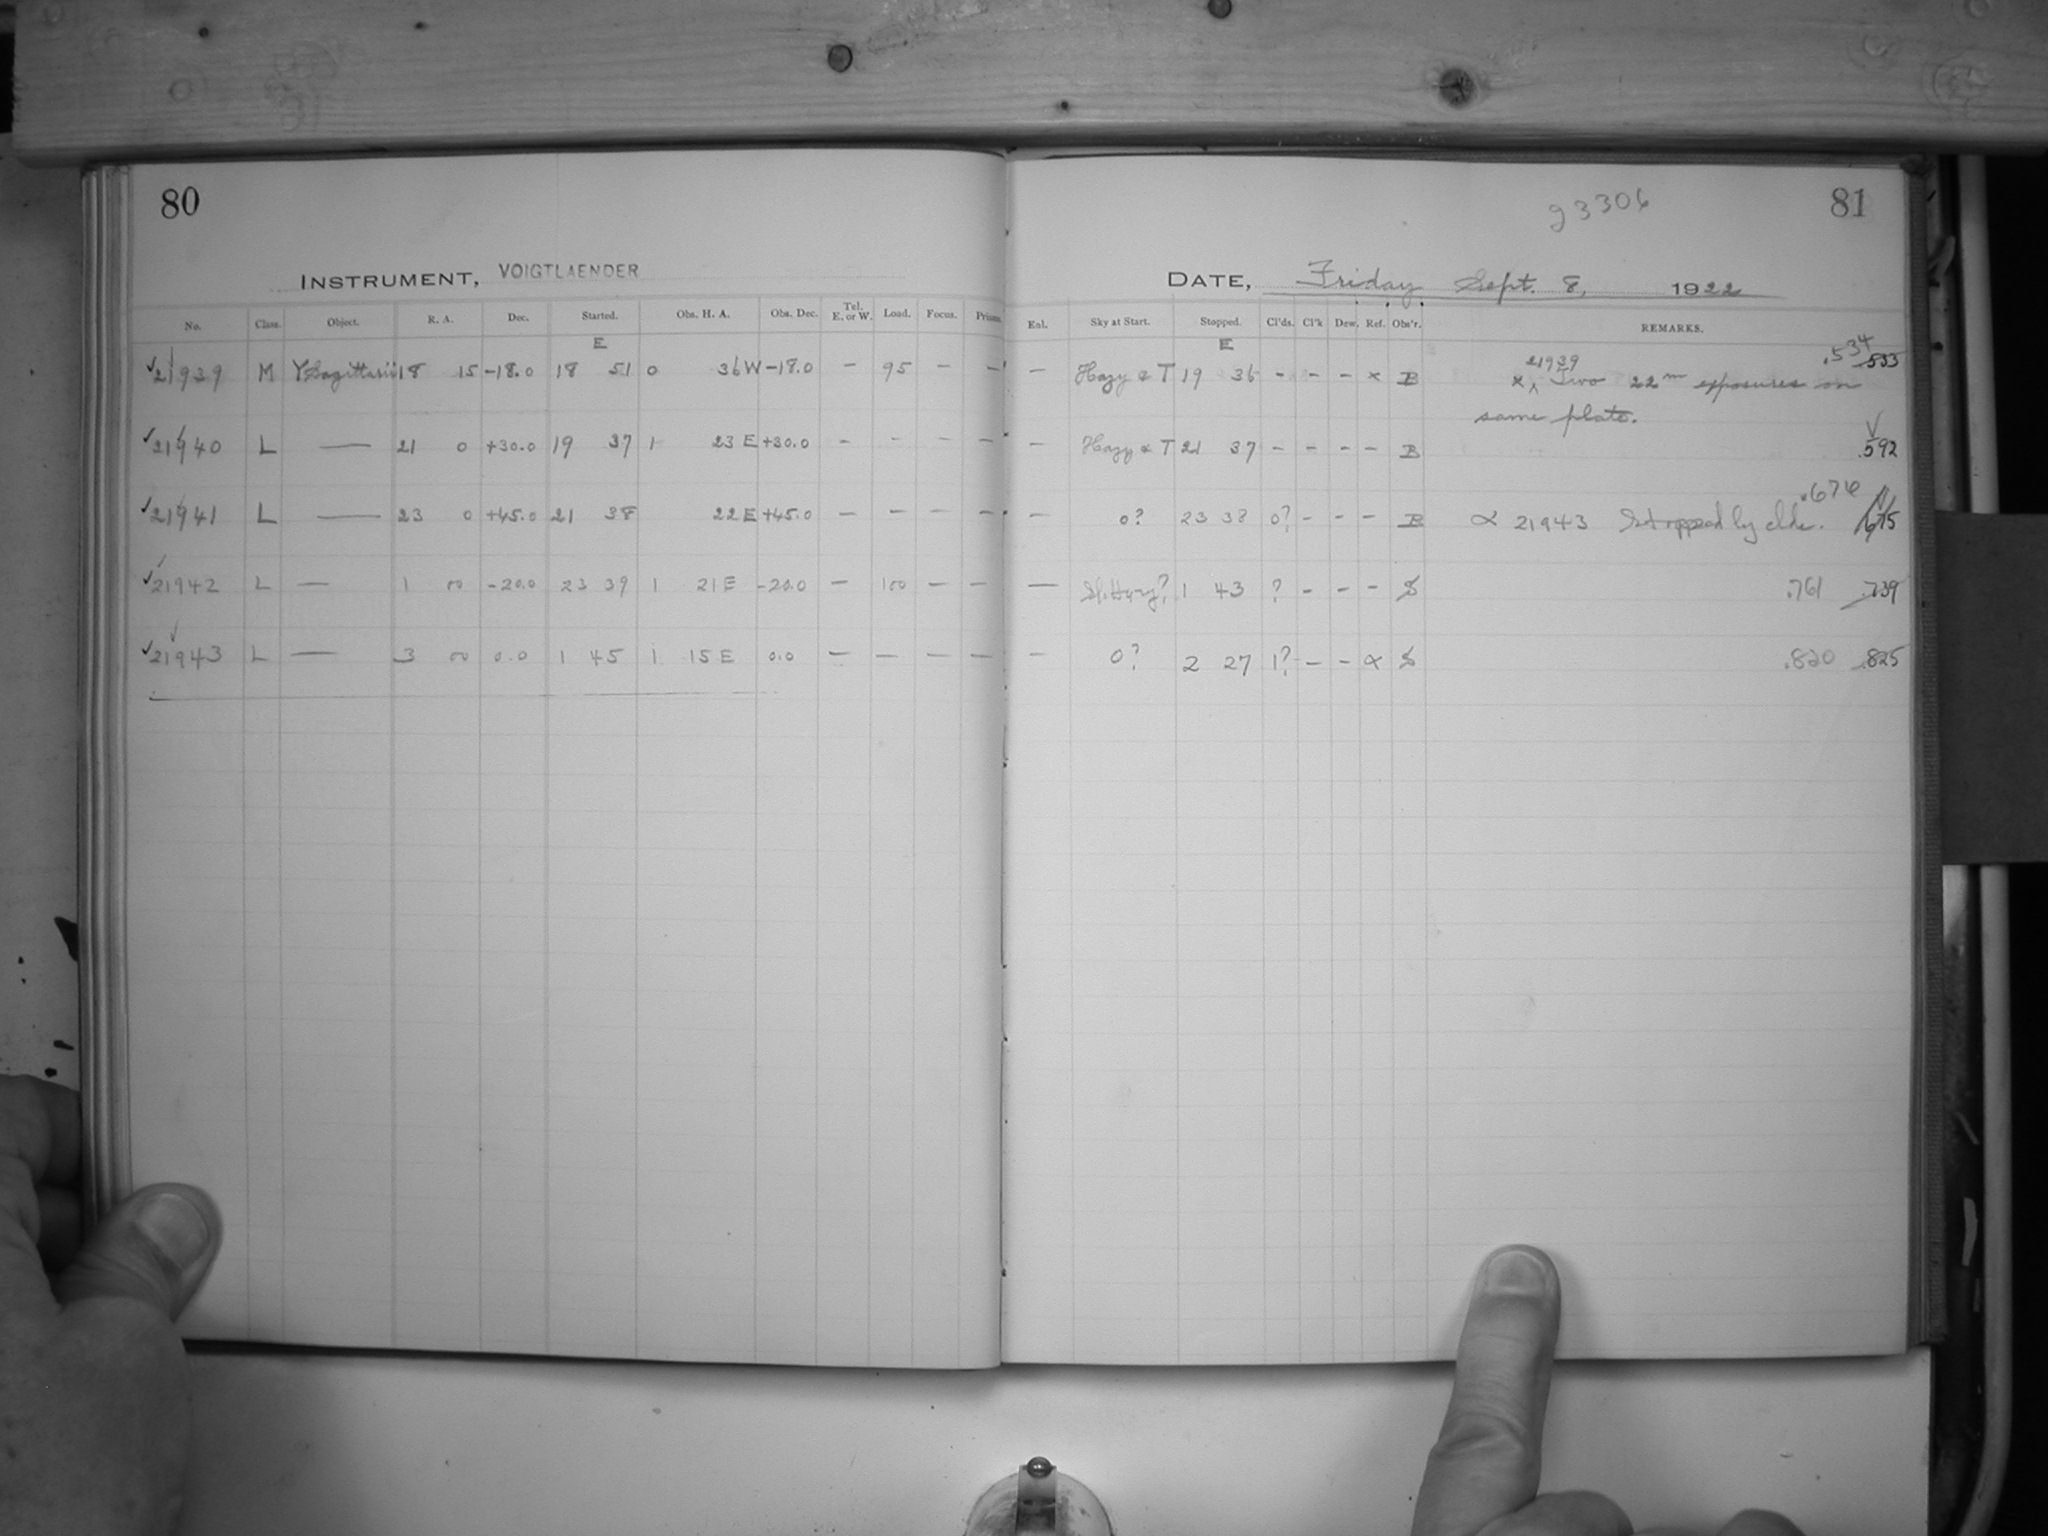 80
INSTRUMENT, VOIGTLAENDER
No. Class. Object. R. A. Dec. Started. Obs. H. A. Obs. Dec. Tel. E. or W. Load. Focus. Prisms.
E
21939 M Y Sagittarii 18 15 -18.0 18 51 0 36 W -18.0 — 95 — —
21940 L — 21 0 +30.0 19 37 1 23 E +30.0 - - - -
21941 L — 23 0 +45.0 21 38 22 E +45.0 - - - -
21942 L — 1 00 -20.0 23 39 1 21 E -20.0 — 100 — —
21943 L — 3 00 0.0 1 45 1 15 E 0.0 — — — —
g3306
81
DATE, Friday Sept. 8, 1922
Eal. Sky at Start. Stopped. Cl'ds. Cl'k Dew. Ref. Obs'r. REMARKS.
E
— Hazy & T 19 36 - - - x B x 21939 Two 22m exposures on .534 .533
same plate.
— Hazy & T 21 37 - - - - B .592
— 0? 23 38 0? - - - B α 21943 Stopped by clds. .676 .675
— Sl. Hazy? 1 43 ? - - - S .761 .739
— 0? 2 27 1? - - α S .820 .825